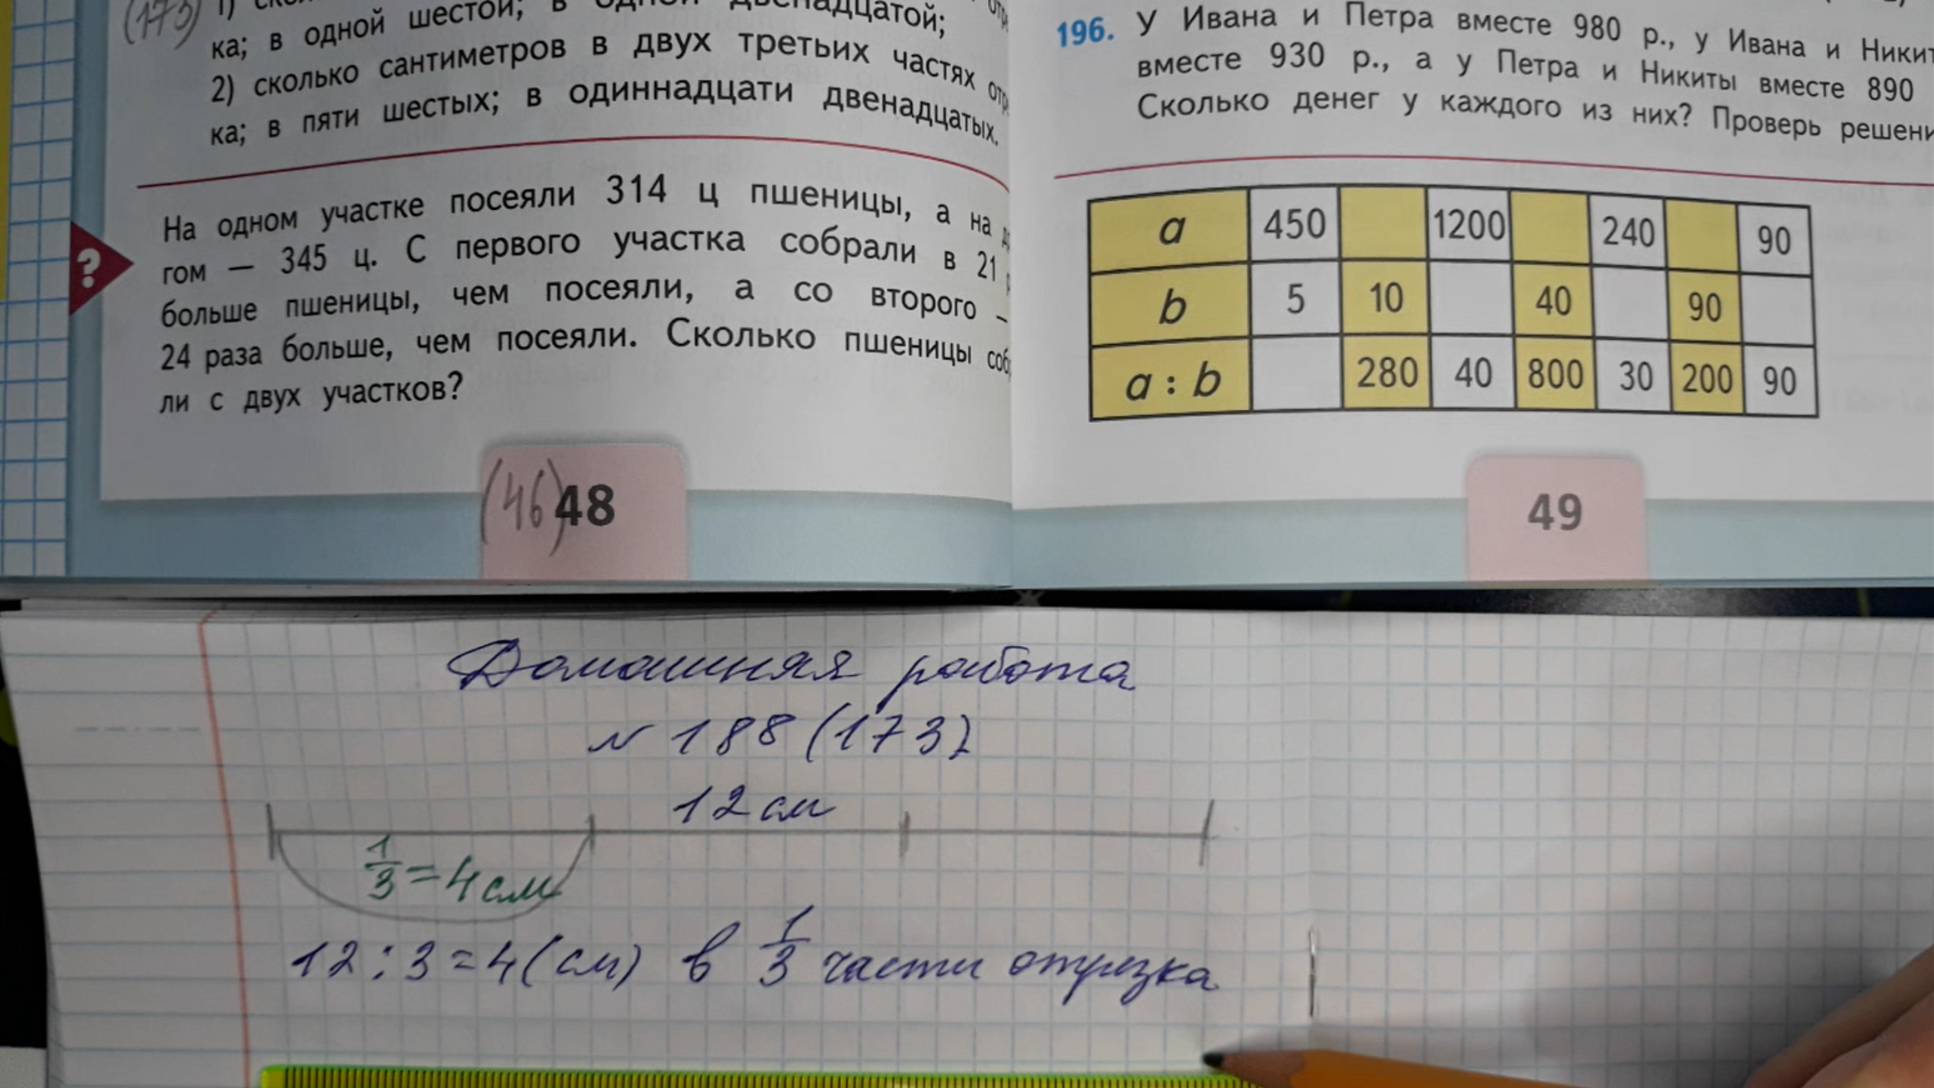 (173) 1)
ка; в одной шестой; в одной двенадцатой;
2) сколько сантиметров в двух третьих частях
ка; в пяти шестых; в одиннадцати двенадцатых.
На одном участке посеяли 314 ц пшеницы, а на
гом — 345 ц. С первого участка собрали в 21
больше пшеницы, чем посеяли, а со второго –
24 раза больше, чем посеяли. Сколько пшеницы соб
ли с двух участков?
?
(46) 48
196. У Ивана и Петра вместе 980 р., у Ивана и Никит
вместе 930 р., а у Петра и Никиты вместе 890
Сколько денег у каждого из них? Проверь решени
a 450 1200 240 90
b 5 10 40 90
a : b 280 40 800 30 200 90
49
Домашняя работа
№ 188 (173)
12 см
1/3 = 4 см
12 : 3 = 4 (см) в 1/3 части отрезка